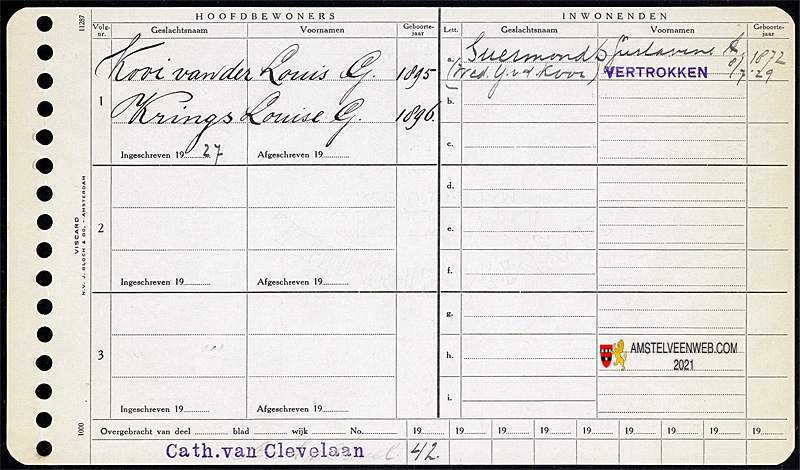 HOOFDBEWONERS
INWONENDEN
11287
Volg-nr.
Geslachtsnaam
Voornamen
Geboorte-jaar
Lett.
Geslachtsnaam
Voornamen
Geboorte-jaar
1
Kooi van der Louis G. 1895
Krings Louise G. 1896.
Ingeschreven 19 27
Afgeschreven 19
a. Suermondt 1872
(wed. G. v d Kooi) VERTROKKEN 8/7 '29
b.
c.
2
Ingeschreven 19
Afgeschreven 19
d.
e.
f.
3
Ingeschreven 19
Afgeschreven 19
g.
h.
i.
AMSTELVEENWEB.COM
2021
VISCARD
N.V. J. BLOCH & Co. - AMSTERDAM
1000
Overgebracht van deel blad wijk No. 19 19 19 19 19 19 19 19 19
Cath. van Clevelaan 42.